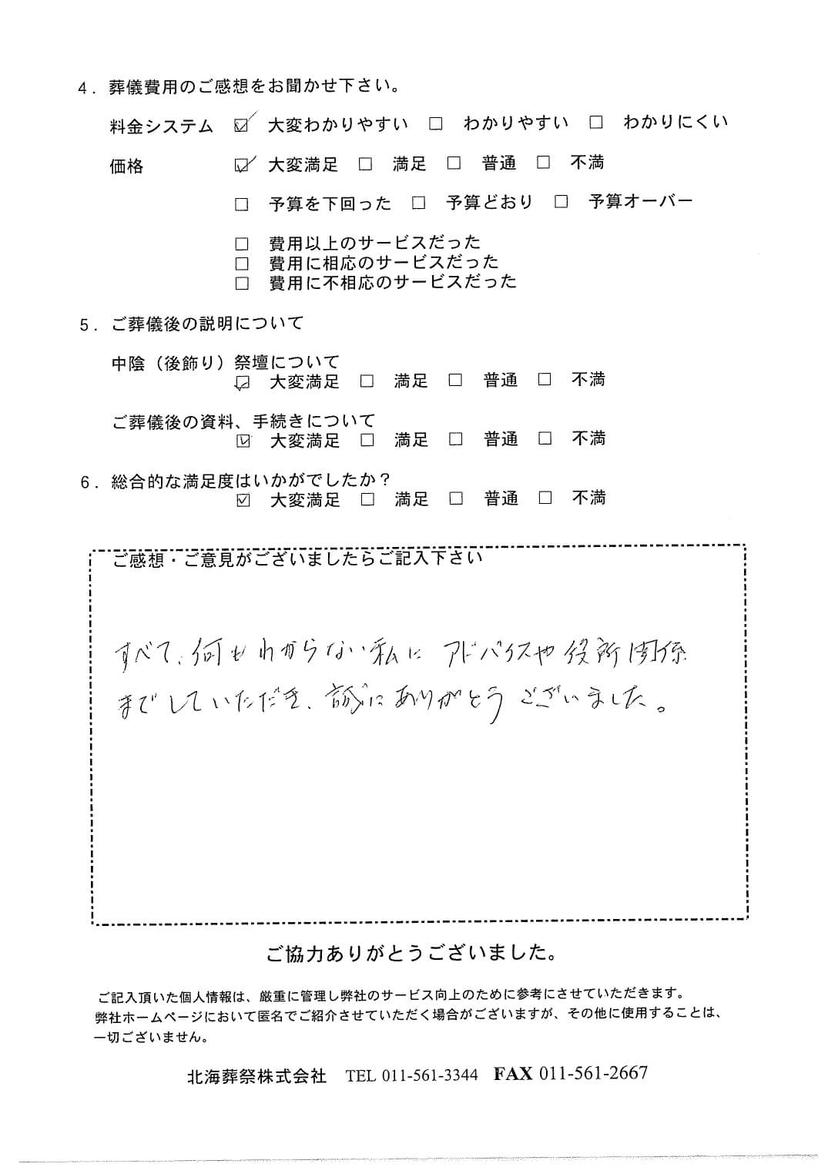 4．葬儀費用のご感想をお聞かせ下さい。
料金システム ☑ 大変わかりやすい □ わかりやすい □ わかりにくい
価格 ☑ 大変満足 □ 満足 □ 普通 □ 不満
□ 予算を下回った □ 予算どおり □ 予算オーバー
□ 費用以上のサービスだった
□ 費用に相応のサービスだった
□ 費用に不相応のサービスだった
5．ご葬儀後の説明について
中陰（後飾り）祭壇について
☑ 大変満足 □ 満足 □ 普通 □ 不満
ご葬儀後の資料、手続きについて
☑ 大変満足 □ 満足 □ 普通 □ 不満
6．総合的な満足度はいかがでしたか？
☑ 大変満足 □ 満足 □ 普通 □ 不満
ご感想・ご意見がございましたらご記入下さい
すべて、何もわからない私に アドバイスや役所関係
までしていただき、誠にありがとうございました。
ご協力ありがとうございました。
ご記入頂いた個人情報は、厳重に管理し弊社のサービス向上のために参考にさせていただきます。
弊社ホームページにおいて匿名でご紹介させていただく場合がございますが、その他に使用することは、
一切ございません。
北海葬祭株式会社 TEL 011-561-3344 FAX 011-561-2667